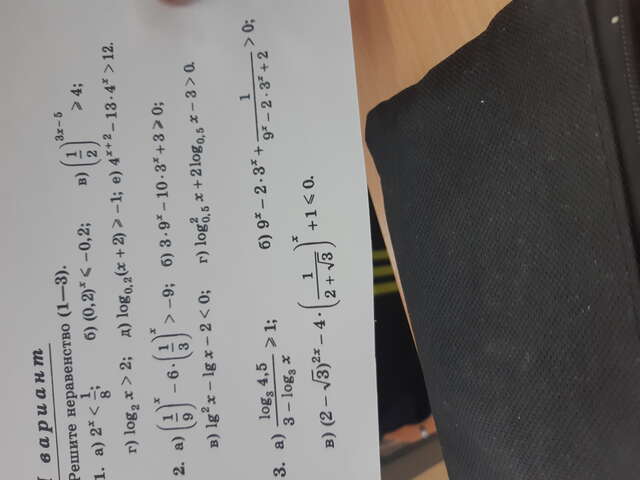 вариант
Решите неравенство (1—3).
1. а) 2^x < 1/8; б) (0,2)^x ⩽ −0,2; в) (1/2)^(3x−5) ⩾ 4;
г) log₂ x > 2; д) log₀,₂(x + 2) ⩾ −1; е) 4^(x+2) − 13 · 4^x > 12.
2. а) (1/9)^x − 6 · (1/3)^x > −9; б) 3 · 9^x − 10 · 3^x + 3 ⩾ 0;
в) lg² x − lg x − 2 < 0; г) log²₀,₅ x + 2 log₀,₅ x − 3 > 0.
3. а) (log₃ 4,5)/(3 − log₃ x) ⩾ 1; б) 9^x − 2 · 3^x + 1/(9^x − 2 · 3^x + 2) > 0;
в) (2 − √3)^(2x) − 4 · (1/(2 + √3))^x + 1 ⩽ 0.